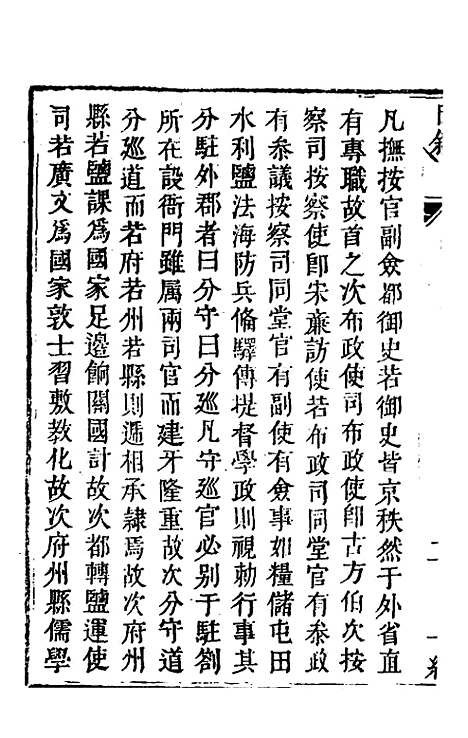 凡撫按官副僉都御史若御史皆京秩然于外省直
有專職故首之次布政使司布政使卽古方伯次按
察司按察使卽宋亷訪使若布政司同堂官有叅政
有叅議按察司同堂官有副使有僉事如糧儲屯田
水利鹽法海防兵俻驛傳提督學政則視勅行事其
分駐外郡者曰分守曰分廵凡守廵官必别于駐劄
所在設衙門雖属兩司官而建牙隆重故次分守道
分廵道而若府若州若縣則遞相承隷焉故次府州
縣若鹽課爲國家足邊餉關國計故次都轉鹽運使
司若廣文爲國家敦士習敷教化故次府州縣儒學